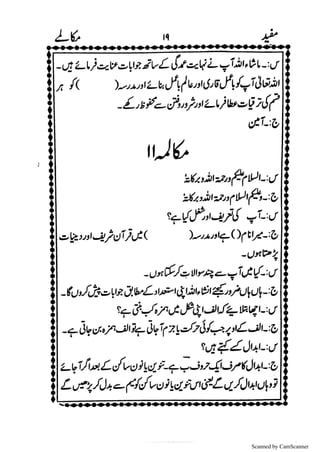 مفید ۱۹ مکالمے
س:۔ ماشاء اللہ آپ نے نہایت عمدگی کے ساتھ جوابات عنایت فرمائے ہیں۔
اللہ تعالیٰ آپ کو باعمل قاری اور عالم باعمل بنائے اور مدرسہ ( ) کو ہر
قسم کی ترقیات عطا فرمائے اور شرور و فتن سے محفوظ رکھے۔
ج:۔ آمین
مکالمہ اا
س:۔ السلام علیکم ورحمۃ اللہ وبرکاتہ
ج:۔ وعلیکم السلام ورحمۃ اللہ وبرکاتہ
س:۔ آپ کی تعریف اور شغل کیا ہے؟
ج:۔ میرا نام ( ) ہے اور مدرسہ ( ) میں قرآن شریف اور دینیات
پڑھتا ہوں۔
س:۔ کیا میں آپ سے چند سوالات کرسکتا ہوں۔
ج:۔ ہاں ہاں ضرور کیجئے انشاء اللہ اپنی استعداد کے مطابق جوابات پیش کروں گا۔
س:۔ اچھا بتلایئے کہ الف اپنی شکل میں ہمزہ کب بنتی ہے؟
ج:۔ الف کے اوپر جب کوئی حرکت یا جزم آجاتی ہے تو الف ہمزہ بن جاتی ہے۔
س:۔ ابدال کسے کہتے ہیں؟
ج:۔ ابدال کا صرف ایک حرف ب ہے۔ تنوین یا نون ساکن کے بعد اگر آجائے
تو وہاں ابدال کریں گے یعنی اس تنوین یا نون ساکن کو میم سے بدل کر پڑھیں گے
Scanned by CamScanner